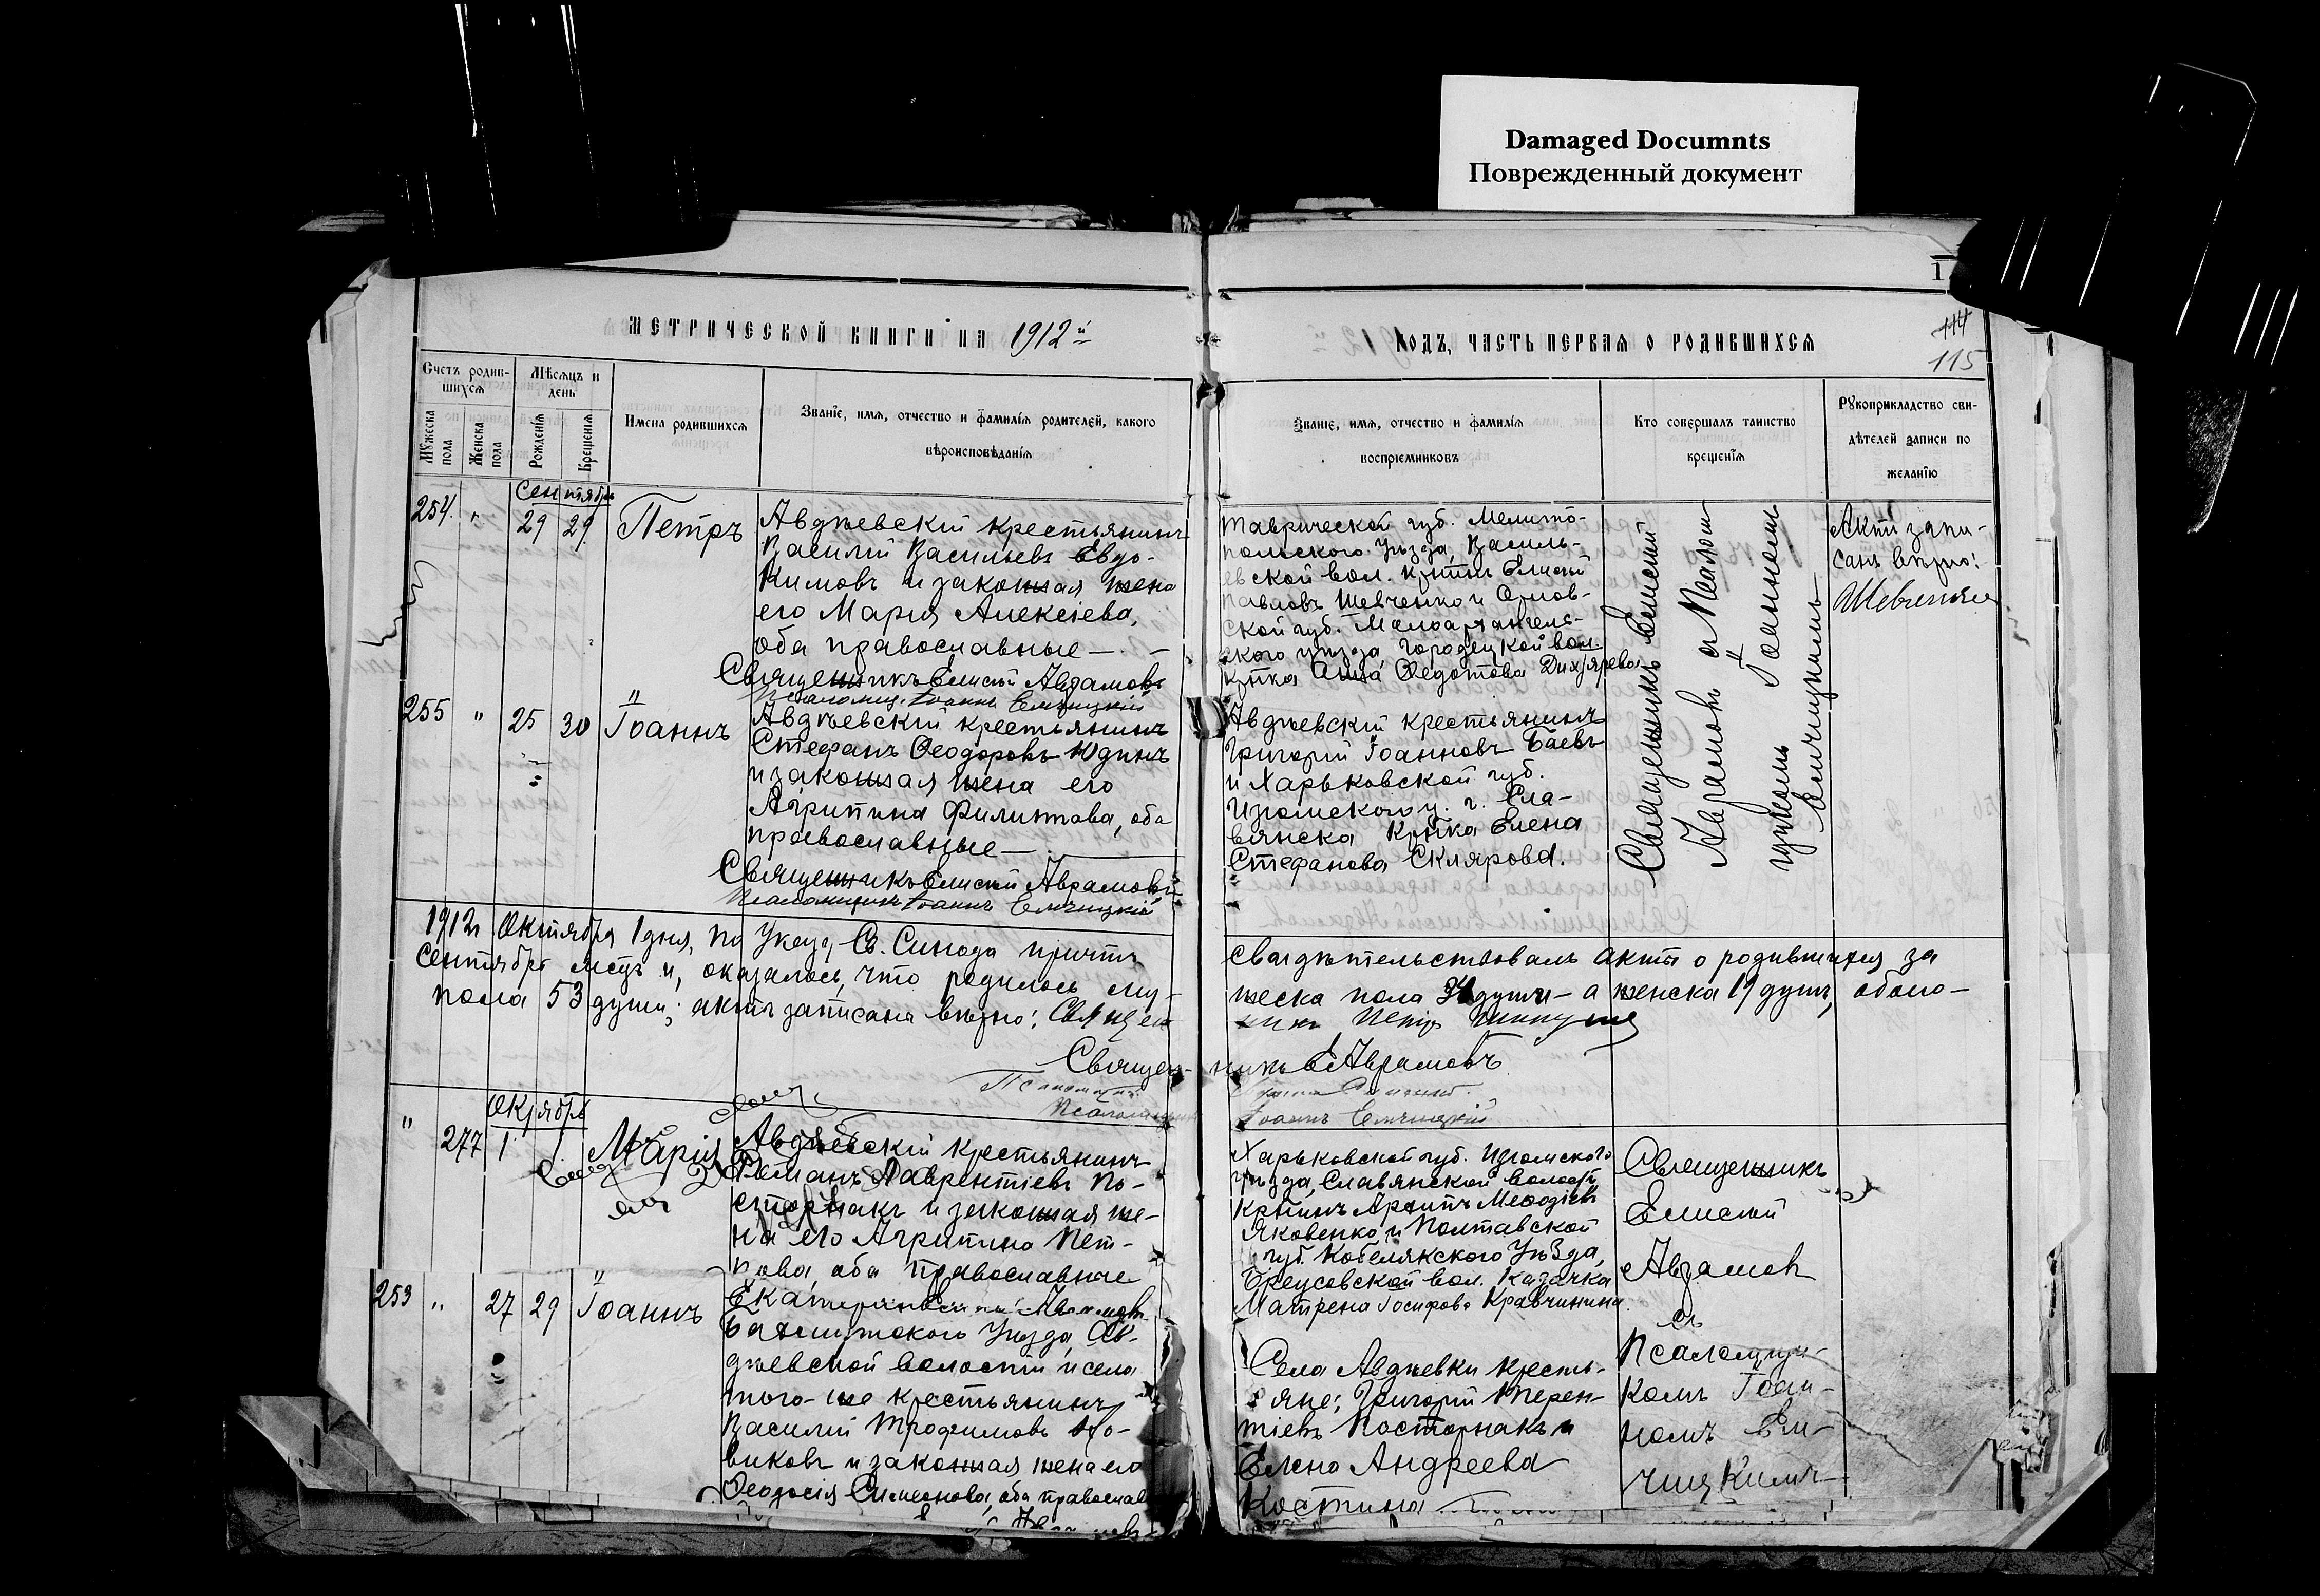 Damaged Documnts
Поврежденный документ
МЕТРИЧЕСКОЙ КНИГИ НА 1912й
ГОДЪ, ЧАСТЬ ПЕРВАЯ О РОДИВШИХСЯ
114
115
Счетъ родив-
шихся
Мужеска пола
Женска пола
Мѣсяцъ и
день
Рожденія
Крещенія
Имена родившихся
Званіе, имя, отчество и фамилія родителей, какого
вѣроисповѣданія
Званіе, имя, отчество и фамилія
воспріемниковъ
Кто совершалъ таинство
крещенія
Рукоприкладство сви-
дѣтелей записи по
желанію
Сентябрь
254. " 29 29 Петръ
Авдѣевскій крестьянинъ
Василій Васильевъ Евдо-
кимовъ и законная жена
его Марія Алексіева,
оба православные —
Священникъ Елисей Авраамовъ
Псаломщ. Іоаннъ Емчицкій
Таврической губ. Мелито-
польскаго уѣзда, Василь-
евской вол. кр-нинъ Елисей
Павловъ Шевченко и Орлов-
ской губ. Малоархангель-
скаго уѣзда Городецкой вол.
кр-тка Анна Ѳедотова
Священникъ Елисей
Авраамовъ съ Псаломщ
щикомъ Іоанномъ
Емчицкимъ
Актъ запи-
санъ вѣрно:
Шевченко
255 " 25 30 Іоаннъ
Авдѣевскій крестьянинъ
Стефанъ Ѳеодоровъ Юдинъ
и законная жена его
Агрипина Филиппова, оба
православные —
Священникъ Елисей Авраамовъ
Псаломщикъ Іоаннъ Емчицкій
Авдѣевскій крестьянинъ
Григорій Іоанновъ Баевъ
и Харьковской губ.
Изюмскаго у. г. Сла-
вянска кр-тка Елена
Стефанова Склярова.
1912г Октября 1 дня, по Указу Св. Синода причтъ
свидѣтельствовалъ акты о родившихся за
Сентябрь мсцъ и, оказалось, что родилось му-
жеска пола 34 души — а женска 19 душъ, обоего
пола 53 души; актъ записанъ вѣрно: Священ
никъ Петръ
Священ- никъ Е Авраамовъ
Псаломщикъ
Псаломщикъ Іоаннъ Емчицкій
Октябрь
" 277 1 1 Марія
Авдѣевскій крестьянинъ
Романъ Лаврентіевъ По-
сторнакъ и законная же-
на его Агрипина Пет-
рова, оба православные
Харьковской губ. Изюмскаго
уѣзда, Славянской волости,
кр-нинъ Архипъ Меѳодіевъ
Яковенко, и Полтавской
губ. Кобелякскаго Уѣзда,
Бреусовской вол. казачка
Матрена Іосифова Кравчинина.
Священникъ
Елисей
Авраамовъ
съ
Псаломщи-
комъ Іоан-
номъ Ем-
чицкимъ
253 " 27 29 Іоаннъ
Екатеринославской
Бахмутскаго Уѣзда, Ав-
дѣевской волости и села
того-же крестьянинъ
Василій Трофимовъ
виковъ и законная жена его
Ѳеодосія Симеонова, оба православ
Села Авдѣевки кресть-
яне: Григорій Терен-
тіевъ Посторнакъ и
Елена Андреева
Костина